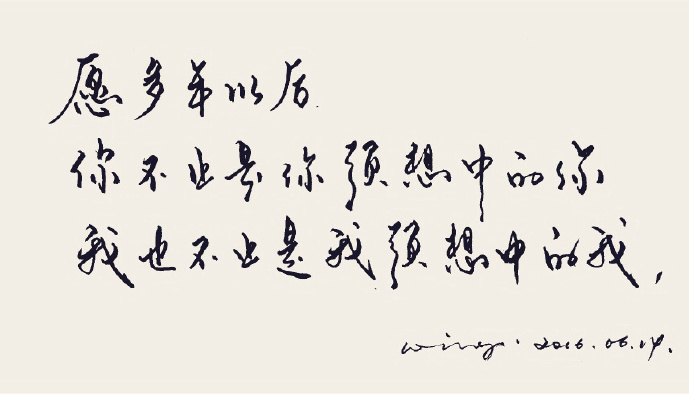 愿多年以后
你不止是你预想中的你
我也不止是我预想中的我,
2016.06.14.